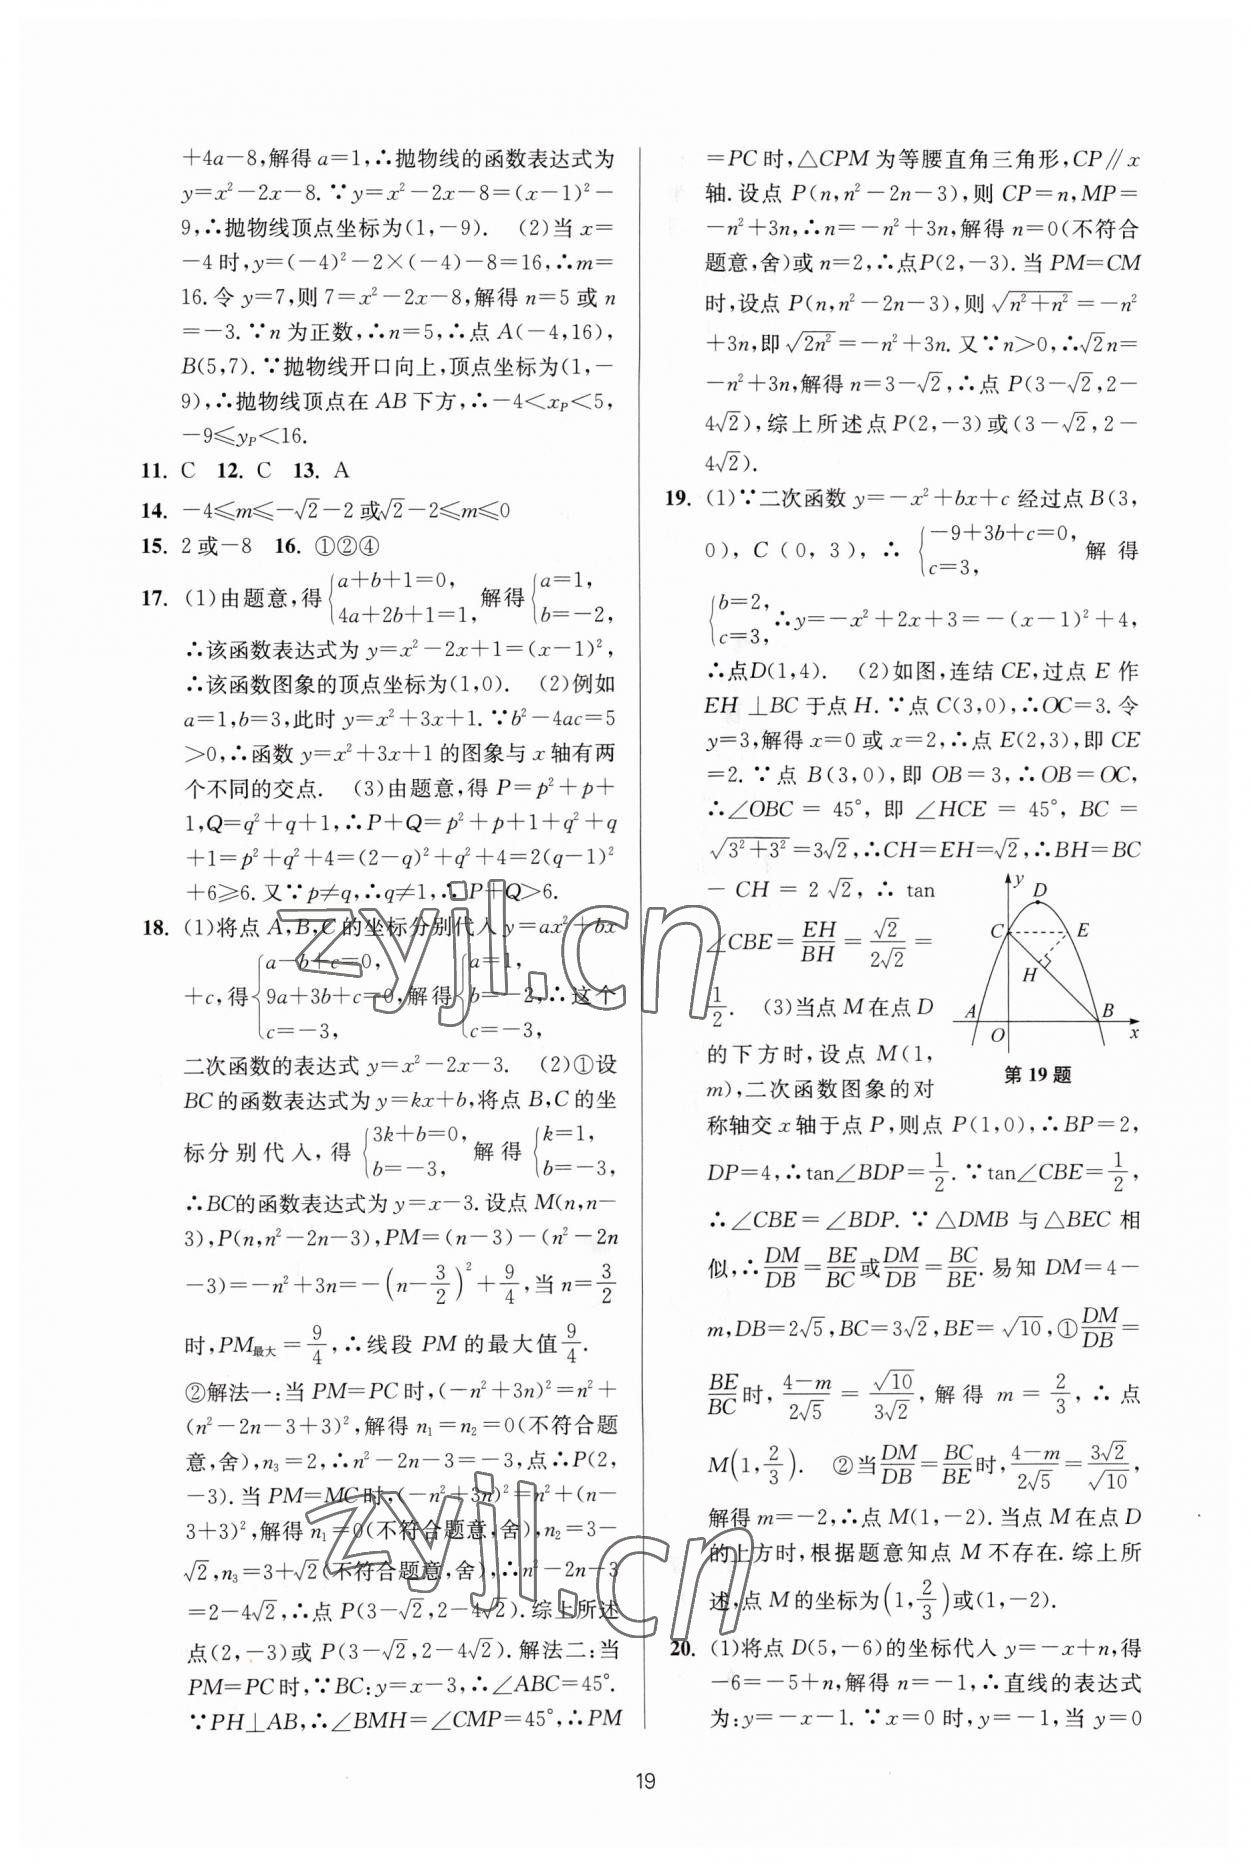 +4a-8,解得a=1,∴抛物线的函数表达式为
y=x²-2x-8.∵y=x²-2x-8=(x-1)²-
9,∴抛物线顶点坐标为(1,-9). (2)当x=
-4时,y=(-4)²-2×(-4)-8=16,∴m=
16.令y=7,则7=x²-2x-8,解得n=5或n
=-3.∵n为正数,∴n=5,∴点A(-4,16),
B(5,7).∵抛物线开口向上,顶点坐标为(1,-
9),∴抛物线顶点在AB下方,∴-4<x_P<5,
-9≤y_P<16.
11. C 12. C 13. A
14. -4≤m≤-√2-2或√2-2≤m≤0
15. 2或-8 16. ①②④
17. (1)由题意,得{a+b+1=0, 4a+2b+1=1, 解得{a=1, b=-2,
∴该函数表达式为y=x²-2x+1=(x-1)²,
∴该函数图象的顶点坐标为(1,0). (2)例如
a=1,b=3,此时y=x²+3x+1.∵b²-4ac=5
>0,∴函数y=x²+3x+1的图象与x轴有两
个不同的交点. (3)由题意,得P=p²+p+
1,Q=q²+q+1,∴P+Q=p²+p+1+q²+q
+1=p²+q²+4=(2-q)²+q²+4=2(q-1)²
+6≥6.又∵p≠q,∴q≠1,∴P+Q>6.
18. (1)将点A,B,C的坐标分别代入y=ax²+bx
+c,得{a-b+c=0, 9a+3b+c=0, c=-3, 解得{a=1, b=-2, c=-3, ∴这个
二次函数的表达式y=x²-2x-3. (2)①设
BC的函数表达式为y=kx+b,将点B,C的坐
标分别代入,得{3k+b=0, b=-3, 解得{k=1, b=-3,
∴BC的函数表达式为y=x-3.设点M(n,n-
3),P(n,n²-2n-3),PM=(n-3)-(n²-2n
-3)=-n²+3n=-(n-3/2)²+9/4,当n=3/2
时,PM最大=9/4,∴线段PM的最大值9/4.
②解法一:当PM=PC时,(-n²+3n)²=n²+
(n²-2n-3+3)²,解得n₁=n₂=0(不符合题
意,舍),n₃=2,∴n²-2n-3=-3,点∴P(2,
-3).当PM=MC时,(-n²+3n)²=n²+(n-
3+3)²,解得n₁=0(不符合题意,舍),n₂=3-
√2,n₃=3+√2(不符合题意,舍),∴n²-2n-3
=2-4√2,∴点P(3-√2,2-4√2).综上所述
点(2,-3)或P(3-√2,2-4√2).解法二:当
PM=PC时,∵BC:y=x-3,∴∠ABC=45°.
∵PH⊥AB,∴∠BMH=∠CMP=45°,∴PM
=PC时,△CPM为等腰直角三角形,CP∥x
轴.设点P(n,n²-2n-3),则CP=n,MP=
-n²+3n,∴n=-n²+3n,解得n=0(不符合
题意,舍)或n=2,∴点P(2,-3).当PM=CM
时,设点P(n,n²-2n-3),则√(n²+n²)=-n²
+3n,即√(2n²)=-n²+3n.又∵n>0,∴√2n=
-n²+3n,解得n=3-√2,∴点P(3-√2,2-
4√2),综上所述点P(2,-3)或(3-√2,2-
4√2).
19. (1)∵二次函数y=-x²+bx+c经过点B(3,
0),C(0,3),∴{-9+3b+c=0, c=3, 解得
{b=2, c=3, ∴y=-x²+2x+3=-(x-1)²+4,
∴点D(1,4). (2)如图,连结CE,过点E作
EH⊥BC于点H.∵点C(3,0),∴OC=3.令
y=3,解得x=0或x=2,∴点E(2,3),即CE
=2.∵点B(3,0),即OB=3,∴OB=OC,
∴∠OBC=45°,即∠HCE=45°,BC=
√(3²+3²)=3√2,∴CH=EH=√2,∴BH=BC
-CH=2√2,∴tan
∠CBE=EH/BH=√2/(2√2)=
1/2. (3)当点M在点D
的下方时,设点M(1,
m),二次函数图象的对
y
D
C
E
H
A
O
B
x
第19题
称轴交x轴于点P,则点P(1,0),∴BP=2,
DP=4,∴tan∠BDP=1/2.∵tan∠CBE=1/2,
∴∠CBE=∠BDP.∵△DMB与△BEC相
似,∴DM/DB=BE/BC或DM/DB=BC/BE.易知DM=4-
m,DB=2√5,BC=3√2,BE=√10,①DM/DB=
BE/BC时,(4-m)/(2√5)=√10/(3√2),解得m=2/3,∴点
M(1,2/3). ②当DM/DB=BC/BE时,(4-m)/(2√5)=3√2/√10,
解得m=-2,∴点M(1,-2).当点M在点D
的上方时,根据题意知点M不存在.综上所
述,点M的坐标为(1,2/3)或(1,-2).
20. (1)将点D(5,-6)的坐标代入y=-x+n,得
-6=-5+n,解得n=-1,∴直线的表达式
为:y=-x-1.∵x=0时,y=-1,当y=0
19
zyjl.cn
zyjl.cn